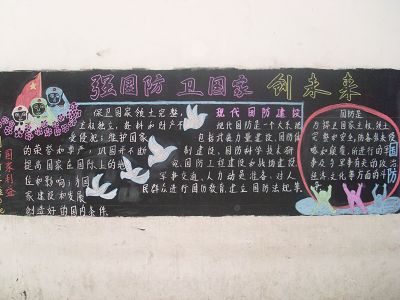 强国防 卫国家 创未来
保卫国家领土完整,
主权独立,各种和财产不
受侵犯;维护国家
的荣誉和尊严,巩固不断
提高国家在国际上的地
位和影响;为国
家建设和发展
创造好的国内条件.
现代国防建设
现代国防是一个大系统
包括武装力量建设,国防体
制建设,国防科学技术研
究,国防工程建设,战场建设,
军事交通,人力动员准备,对人
民群众进行国防教育,建立国防法规等.
国防是
为捍卫国家主权,领土
完整和安全,防备外来侵
略和颠覆,所进行的军
事及与军事有关的政治
经济文化等方面的斗
争.
国家利益